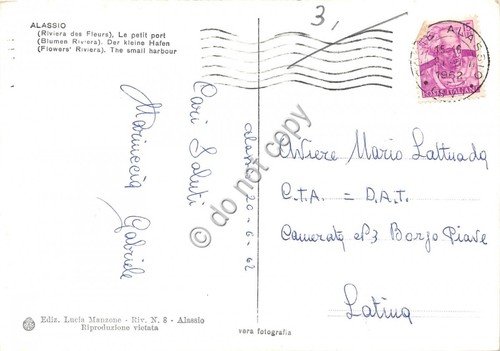 ALASSIO
(Riviera des Fleurs), Le petit port
(Blumen Riviera). Der kleine Hafen
(Flowers' Riviera). The small harbour
3,
ALASSIO
1962
POSTE ITALIANE
Alassio 20-6-62
Cari Saluti
Mariuccia Gabriele
Aviere Mario Lattuada
C.T.A. = D.A.T.
Camerata N°3 Borgo Piave
Latina
do not copy
Ediz. Lucia Manzone - Riv. N. 8 - Alassio
Riproduzione vietata
vera fotografia